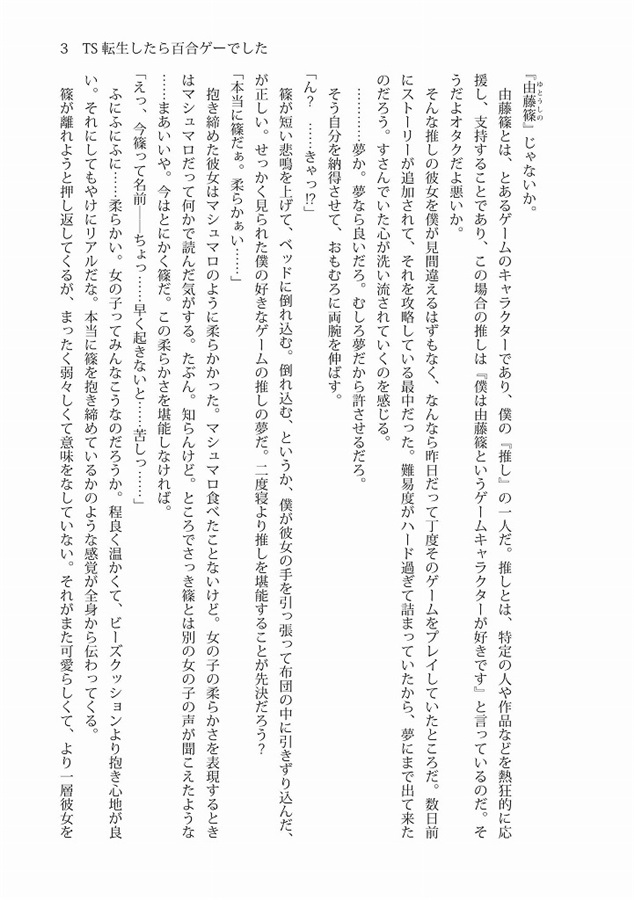 3　TS転生したら百合ゲーでした
『由藤篠』じゃないか。
ゆとうしの
　由藤篠とは、とあるゲームのキャラクターであり、僕の『推し』の一人だ。推しとは、特定の人や作品などを熱狂的に応
援し、支持することであり、この場合の推しは『僕は由藤篠というゲームキャラクターが好きです』と言っているのだ。そ
うだよオタクだよ悪いか。
　そんな推しの彼女を僕が見間違えるはずもなく、なんなら昨日だって丁度そのゲームをプレイしていたところだ。数日前
にストーリーが追加されて、それを攻略している最中だった。難易度がハード過ぎて詰まっていたから、夢にまで出て来た
のだろう。すさんでいた心が洗い流されていくのを感じる。
　…………夢か。夢なら良いだろ。むしろ夢だから許させるだろ。
　そう自分を納得させて、おもむろに両腕を伸ばす。
「ん？　……きゃっ!?」
　篠が短い悲鳴を上げて、ベッドに倒れ込む。倒れ込む、というか、僕が彼女の手を引っ張って布団の中に引きずり込んだ、
が正しい。せっかく見られた僕の好きなゲームの推しの夢だ。二度寝より推しを堪能することが先決だろう？
「本当に篠だぁ。柔らかぁい……」
　抱き締めた彼女はマシュマロのように柔らかかった。マシュマロ食べたことないけど。女の子の柔らかさを表現するとき
はマシュマロだって何かで読んだ気がする。たぶん。知らんけど。ところでさっき篠とは別の女の子の声が聞こえたような
……まあいいや。今はとにかく篠だ。この柔らかさを堪能しなければ。
「えっ、今篠って名前――ちょっ……早く起きないと……苦しっ……」
　ふにふにふに……柔らかい。女の子ってみんなこうなのだろうか。程良く温かくて、ビーズクッションより抱き心地が良
い。それにしてもやけにリアルだな。本当に篠を抱き締めているかのような感覚が全身から伝わってくる。
　篠が離れようと押し返してくるが、まったく弱々しくて意味をなしていない。それがまた可愛らしくて、より一層彼女を